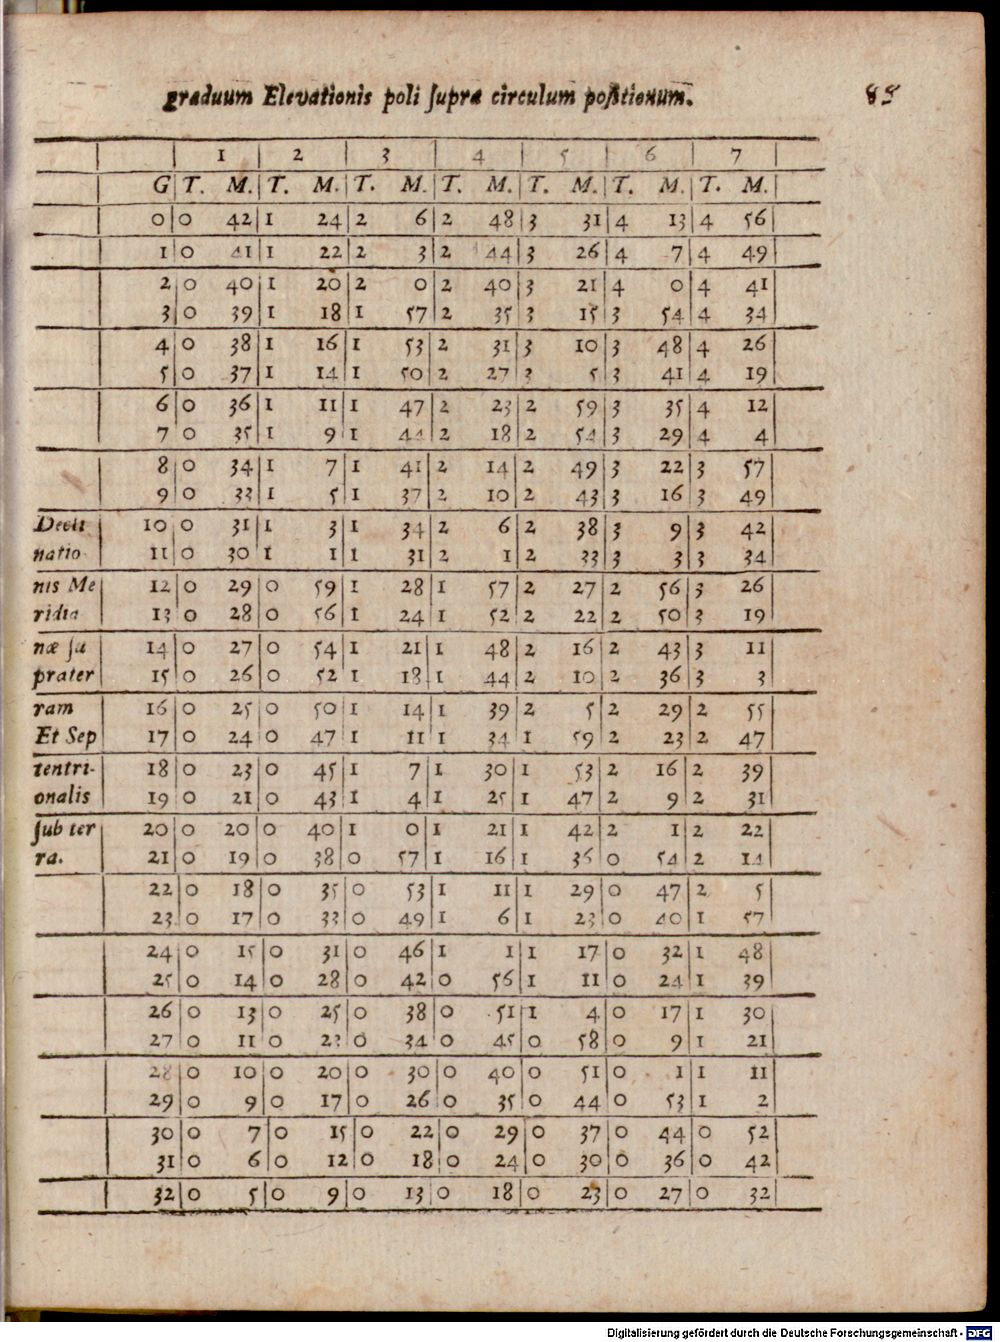 graduum Elevationis poli ſupra circulum poſitionum. 85
1 2 3 4 5 6 7
G T. M. T. M. T. M. T. M. T. M. T. M. T. M.
0 0 42 1 24 2 6 2 48 3 31 4 13 4 56
1 0 41 1 22 2 3 2 44 3 26 4 7 4 49
2 0 40 1 20 2 0 2 40 3 21 4 0 4 41
3 0 39 1 18 1 57 2 35 3 15 3 54 4 34
4 0 38 1 16 1 53 2 31 3 10 3 48 4 26
5 0 37 1 14 1 50 2 27 3 5 3 41 4 19
6 0 36 1 11 1 47 2 23 2 59 3 35 4 12
7 0 35 1 9 1 44 2 18 2 54 3 29 4 4
8 0 34 1 7 1 41 2 14 2 49 3 22 3 57
9 0 33 1 5 1 37 2 10 2 43 3 16 3 49
Decli 10 0 31 1 3 1 34 2 6 2 38 3 9 3 42
natio- 11 0 30 1 1 1 31 2 1 2 33 3 3 3 34
nis Me 12 0 29 0 59 1 28 1 57 2 27 2 56 3 26
ridia 13 0 28 0 56 1 24 1 52 2 22 2 50 3 19
næ ſu 14 0 27 0 54 1 21 1 48 2 16 2 43 3 11
prater 15 0 26 0 52 1 18 1 44 2 10 2 36 3 3
ram 16 0 25 0 50 1 14 1 39 2 5 2 29 2 55
Et Sep 17 0 24 0 47 1 11 1 34 1 59 2 23 2 47
tentri- 18 0 23 0 45 1 7 1 30 1 53 2 16 2 39
onalis 19 0 21 0 43 1 4 1 25 1 47 2 9 2 31
ſub ter 20 0 20 0 40 1 0 1 21 1 42 2 1 2 22
ra. 21 0 19 0 38 0 57 1 16 1 36 0 54 2 14
22 0 18 0 35 0 53 1 11 1 29 0 47 2 5
23 0 17 0 33 0 49 1 6 1 23 0 40 1 57
24 0 15 0 31 0 46 1 1 1 17 0 32 1 48
25 0 14 0 28 0 42 0 56 1 11 0 24 1 39
26 0 13 0 25 0 38 0 51 1 4 0 17 1 30
27 0 11 0 23 0 34 0 45 0 58 0 9 1 21
28 0 10 0 20 0 30 0 40 0 51 0 1 1 11
29 0 9 0 17 0 26 0 35 0 44 0 53 1 2
30 0 7 0 15 0 22 0 29 0 37 0 44 0 52
31 0 6 0 12 0 18 0 24 0 30 0 36 0 42
32 0 5 0 9 0 13 0 18 0 23 0 27 0 32
Digitalisierung gefördert durch die Deutsche Forschungsgemeinschaft - DFG